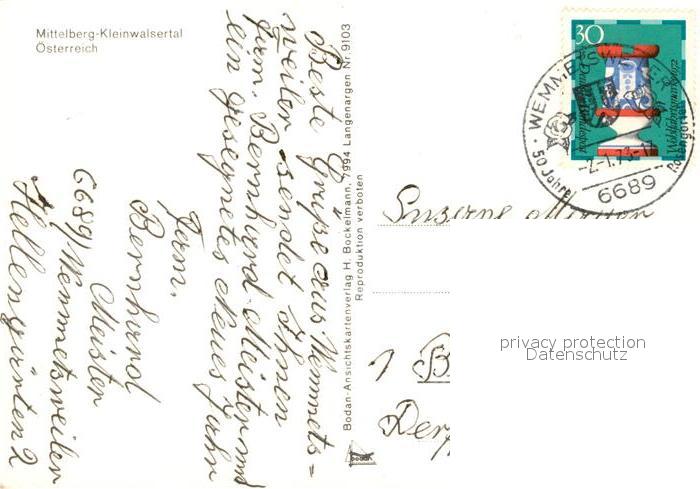 Mittelberg-Kleinwalsertal
Österreich
Beste Grüße aus Wemmets=
weiler sendet Ihnen
Fam. Bernhard Meister und
ein gesegnetes Neues Jahr
Fam.
Bernhard
Meister
6689/Wemmetsweiler
Hellengärten 2
Bodan-Ansichtskartenverlag H. Bockelmann, 7994 Langenargen Nr. 9103
Reproduktion verboten
bodan
30
WEMMETSWEILER
50 Jahre
Rosengarten
6689
Suzerne
1 B
Der
privacy protection
Datenschutz